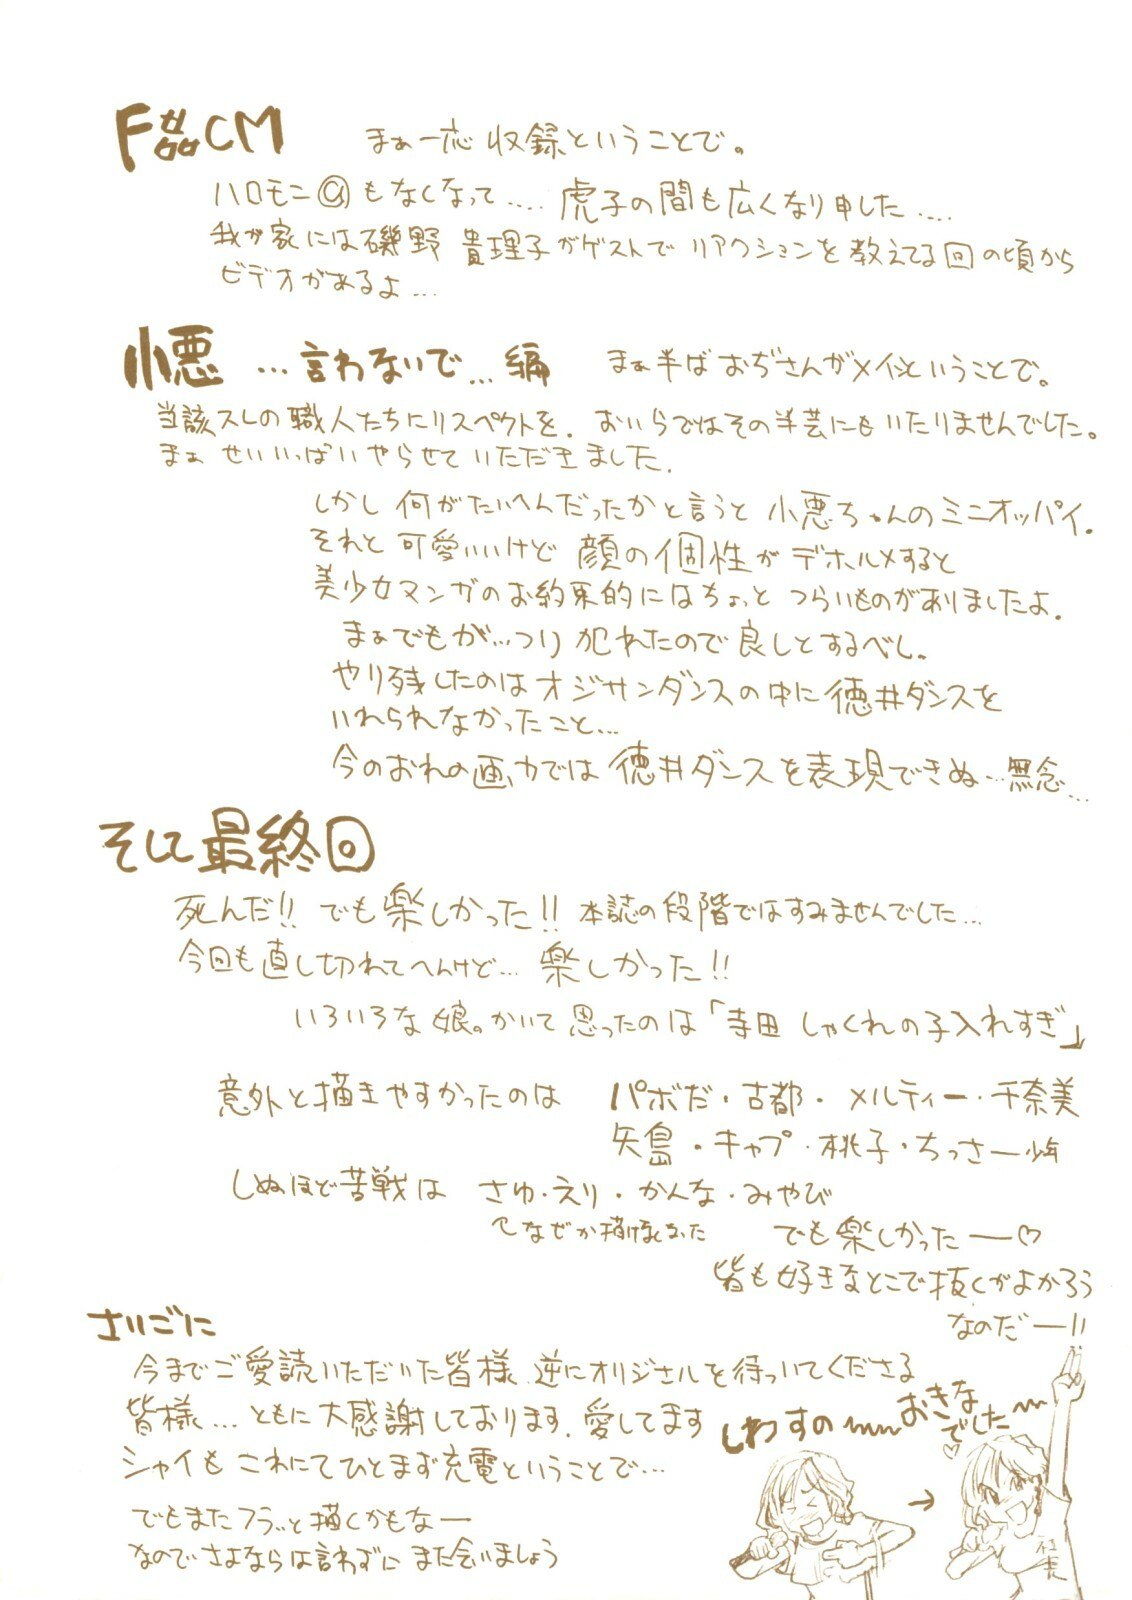 F CM まぁ一応 収録ということで。
ハロモニ@もなくなって…. 虎子の間も広くなり申した….
我が家には磯野 貴理子がゲストで リアクションを教えてる回の頃から
ビデオがあるよ…
小悪 …言わないで…編 まぁ半ば おぢさんがメインということで。
当該スレの職人たちにリスペクトを. おいらではその半芸にもいたりませんでした。
まぁ せいいっぱいやらせていただきました.
しかし 何がたいへんだったかと言うと 小悪ちゃんのミニオッパイ.
それと 可愛いいけど 顔の個性が デホルメすると
美少女マンガのお約束的にはちょっと つらいものがありましたよ.
まぁでもが…つり 犯れたので良しとするべし。
やり残したのはオジサンダンスの中に徳井ダンスを
いれられなかったこと…
今のおれの画力では 徳井ダンスを表現できぬ…無念…
そして最終回
死んだ!! でも楽しかった!! 本誌の段階ではすみませんでした…
今回も直し切れてへんけど… 楽しかった!!
いろいろな娘。かいて思ったのは「寺田 しゃくれの子入れすぎ」
意外と描きやすかったのは パボだ・古都・メルティー・千奈美
矢島・キャプ・桃子・ちっさー少年
しぬほど苦戦は さゆ・えり・かんな・みやび
なぜか描け でも楽しかったー♡
皆も好きなとこで抜くがよかろう
なのだー!!
さいごに
今までご愛読いただいた皆様 逆にオリジナルを待っいてくださる
皆様… ともに大感謝しております. 愛してます
しわすの〜〜おきな
でした〜
シャイもこれにてひとまず充電ということで…
でもまたフラッと描くかもなー
なのでさよならは言わずに また会いましょう
社長